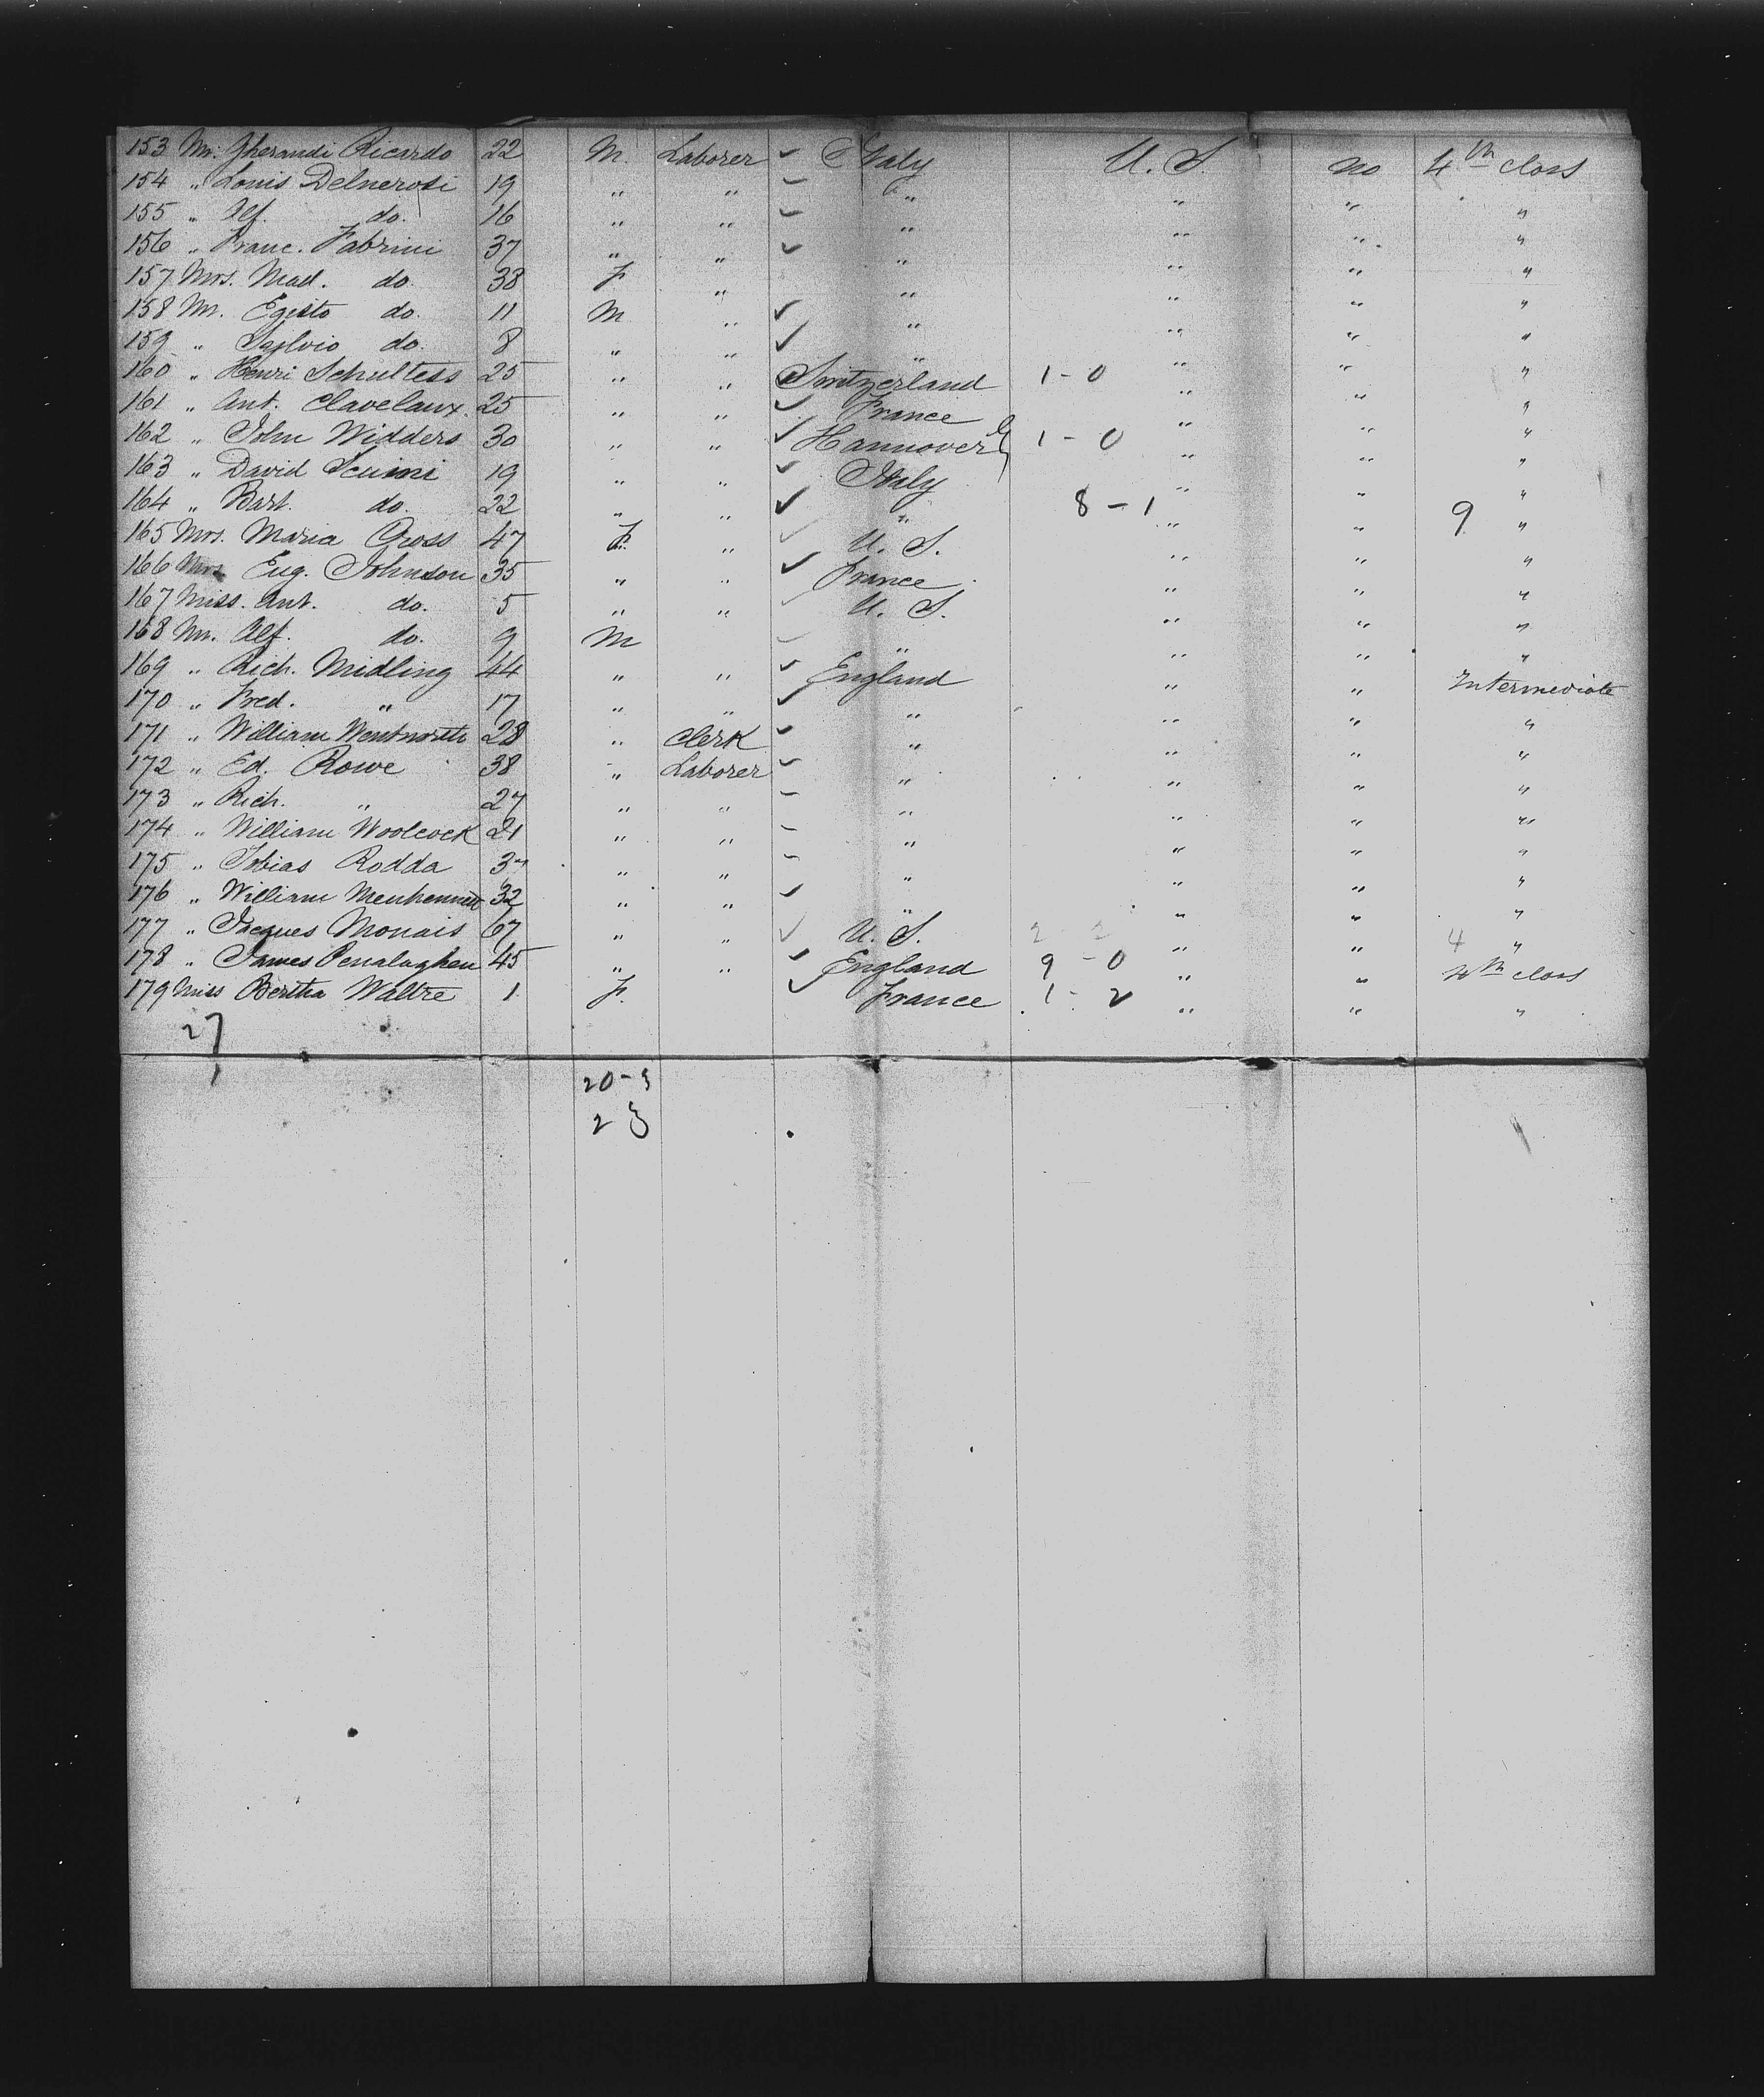 153 Mr. Gherandi Ricardo 22 M. Laborer ✓ Italy U. S. no 4th class
154 " Louis Delnerosi 19 " " " " " "
155 " Alf. do. 16 " " ✓ " " " "
156 " Franc. Fabrini 37 " " ✓ " " " "
157 Mrs. Mad. do 38 F " " " " "
158 Mr. Egisto do. 11 M " ✓ " " " "
159 " Saylvio do. 8 " " ✓ " " " "
160 " Henri Schultess 25 " " Switzerland 1-0 " " "
161 " Ant. Clavelaux. 25 " " ✓ France " " "
162 " John Widders 30 " " ✓ Hannover G 1-0 " " "
163 " David Scuini 19 " " ✓ Italy " " "
164 " Bart. do. 22 " " ✓ " 8-1 " " 9 "
165 Mrs. Maria Gross 47 F. " ✓ U. S. " " "
166 Mrs Eug. Johnson 35 " " ✓ France " " "
167 Miss. Ant. do. 5 " " ✓ U. S. " " "
168 Mr. Alf. do. 9 M " " " "
169 " Rich. Midling 44 " " ✓ England " " Intermediate
170 " Fred. " 17 " " ✓ " " " "
171 " William Wentworth 28 " Clerk ✓ " " " "
172 " Ed. Rowe 38 " Laborer ✓ " " " "
173 " Rich. " 27 " " " " " "
174 " William Woolcock 21 " " " " " "
175 " Tobias Rodda " " " " " "
176 " William Menhennett 32 " " ✓ " " " "
177 " Jacques Monais 67 " " ✓ U. S. 2 2 " " 4 "
178 " James Penalughen 45 " " ✓ England 9-0 " " 4th class
179 Miss Bertha Waltre 1 F. ✓ France 1-2 " " "
27
1
20-3
23